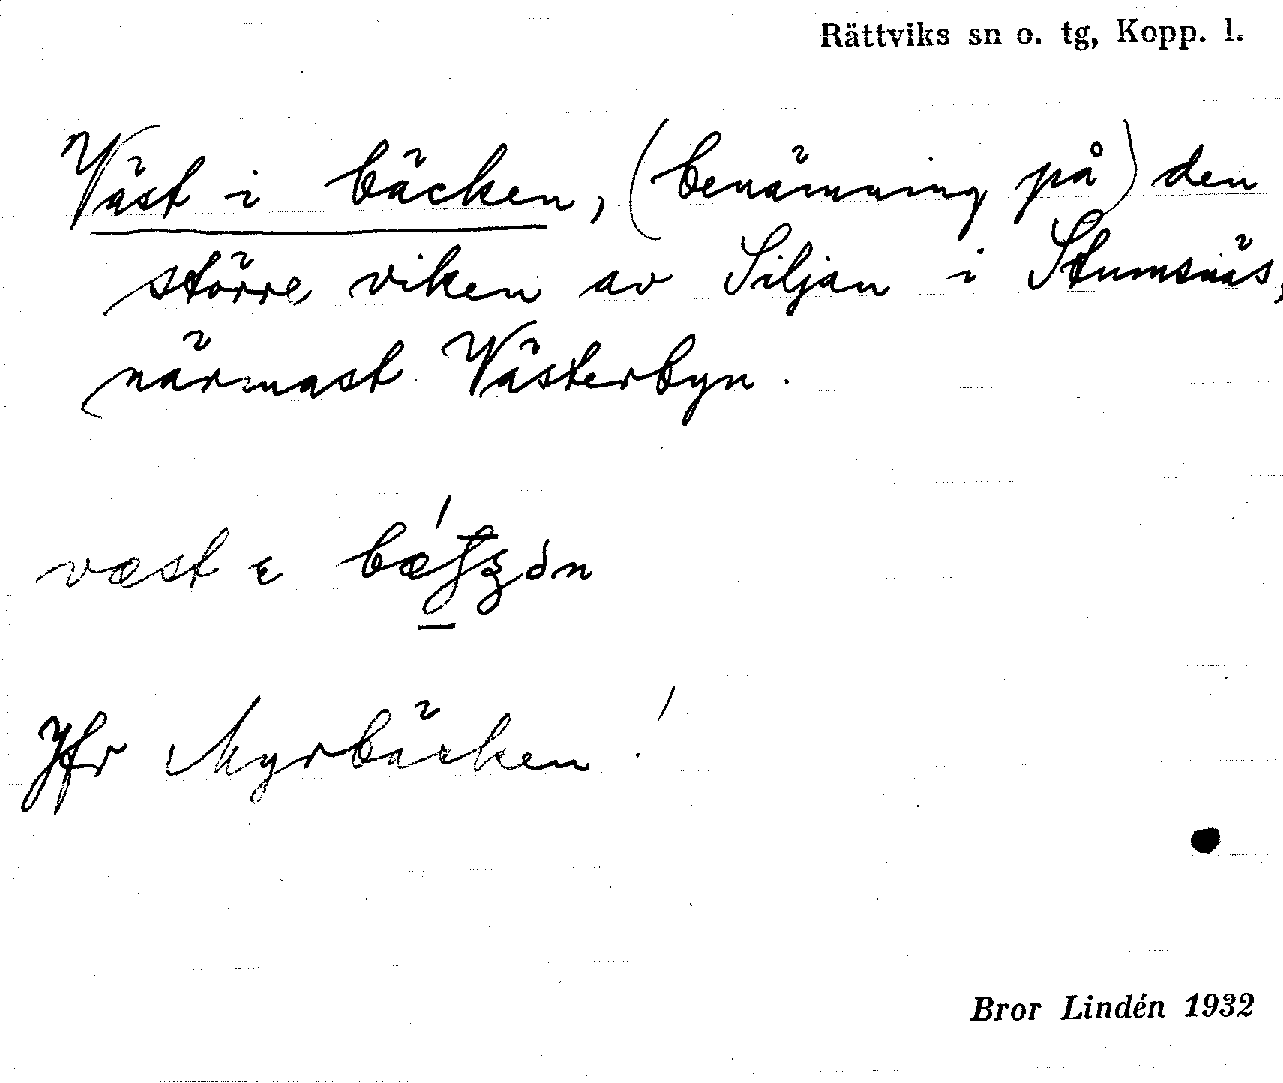 Rättviks sn o. tg, Kopp. l.
Väst i bäcken, (benämning på) den
större viken av Siljan i Stumsnäs,
närmast Västerbyn.
væst
Jfr Myrbäcken!
Bror Lindén 1932